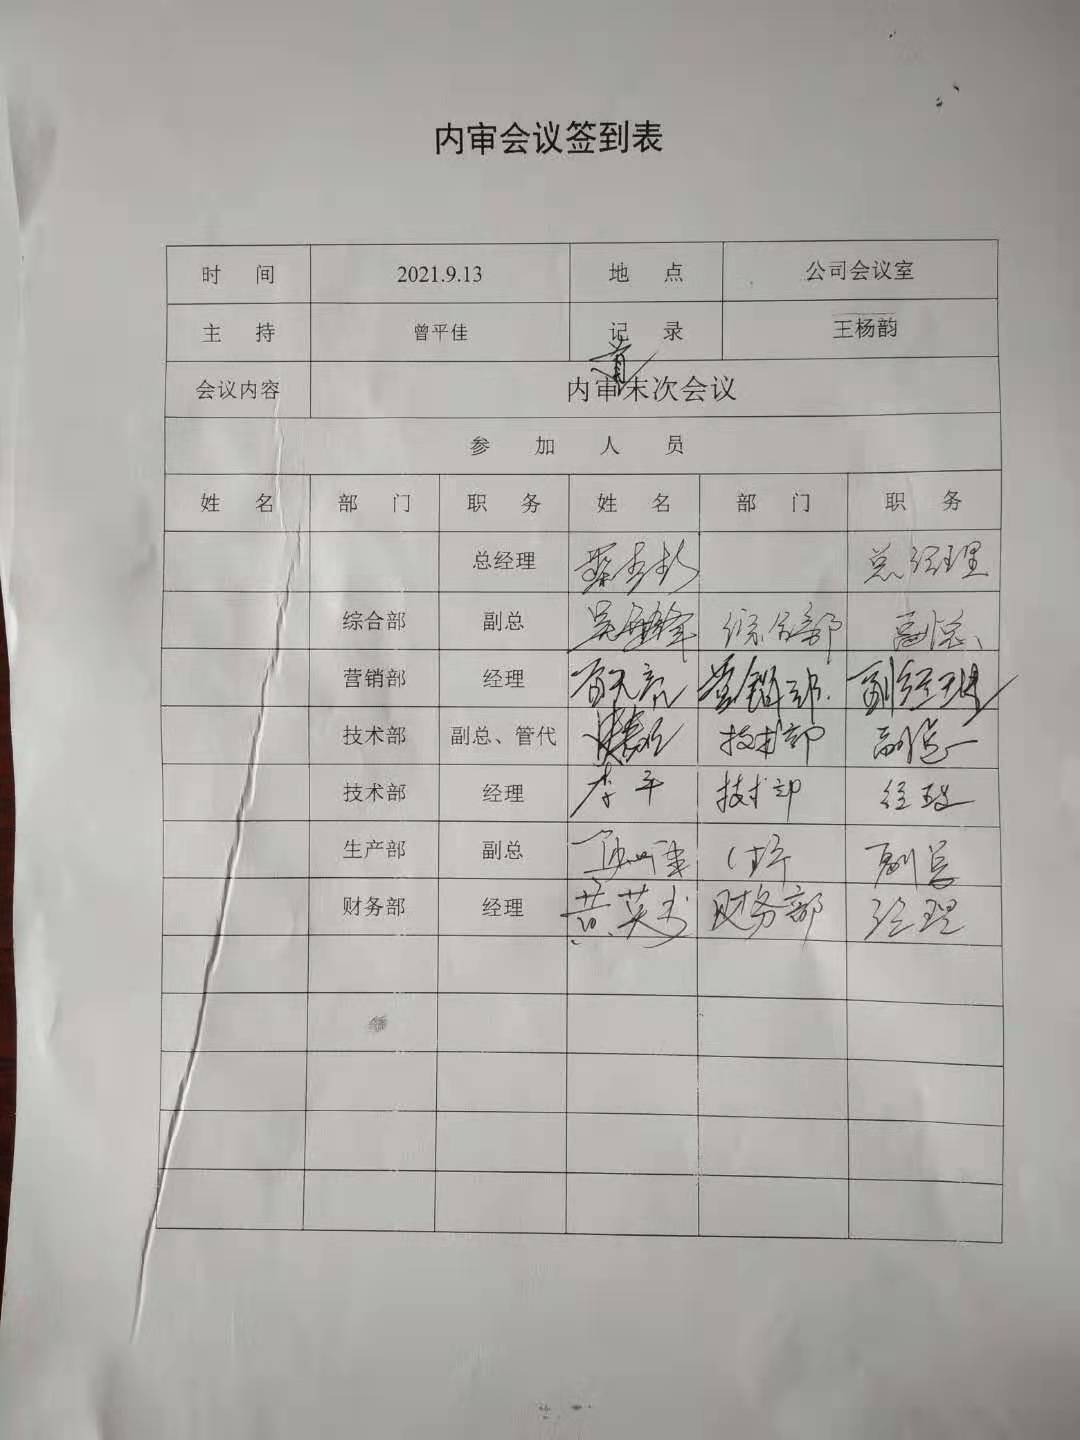 内审会议签到表
时 间 2021.9.13 地 点 公司会议室
主 持 曾平佳 记 录 王杨韵
会议内容 内审末次会议
参 加 人 员
姓 名 部 门 职 务 姓 名 部 门 职 务
总经理 总经理
综合部 副总 综合部 副总
营销部 经理 营销部 副经理
技术部 副总、管代 技术部 副总
技术部 经理 李平 技术部 经理
生产部 副总 副总
财务部 经理 财务部 经理